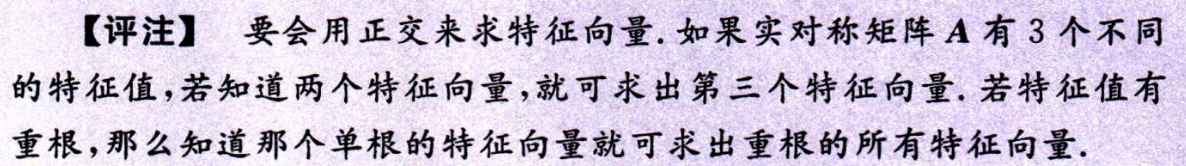 【评注】 要会用正交来求特征向量.如果实对称矩阵 A 有 3 个不同
的特征值,若知道两个特征向量,就可求出第三个特征向量.若特征值有
重根,那么知道那个单根的特征向量就可求出重根的所有特征向量.